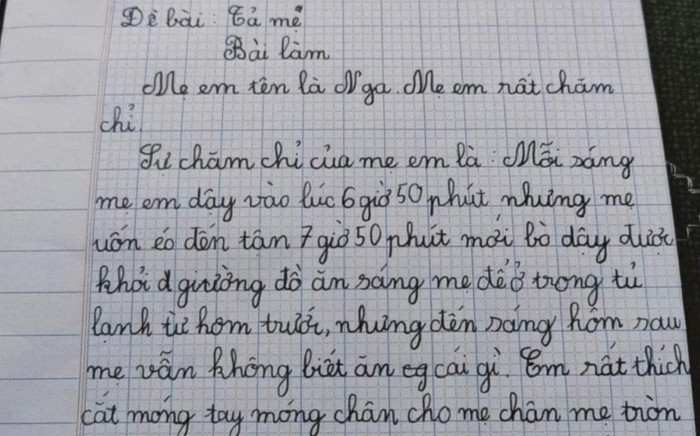 Đề bài: Tả mẹ
Bài làm
Mẹ em tên là Nga. Mẹ em rất chăm
chỉ.
Sự chăm chỉ của mẹ em là: Mỗi sáng
mẹ em dậy vào lúc 6 giờ 50 phút nhưng mẹ
uốn éo đến tận 7 giờ 50 phút mới bò dậy được
khỏi giường đồ ăn sáng mẹ để ở trong tủ
lạnh từ hôm trước, nhưng đến sáng hôm sau
mẹ vẫn không biết ăn cái gì. Em rất thích
cắt móng tay móng chân cho mẹ chân mẹ tròn